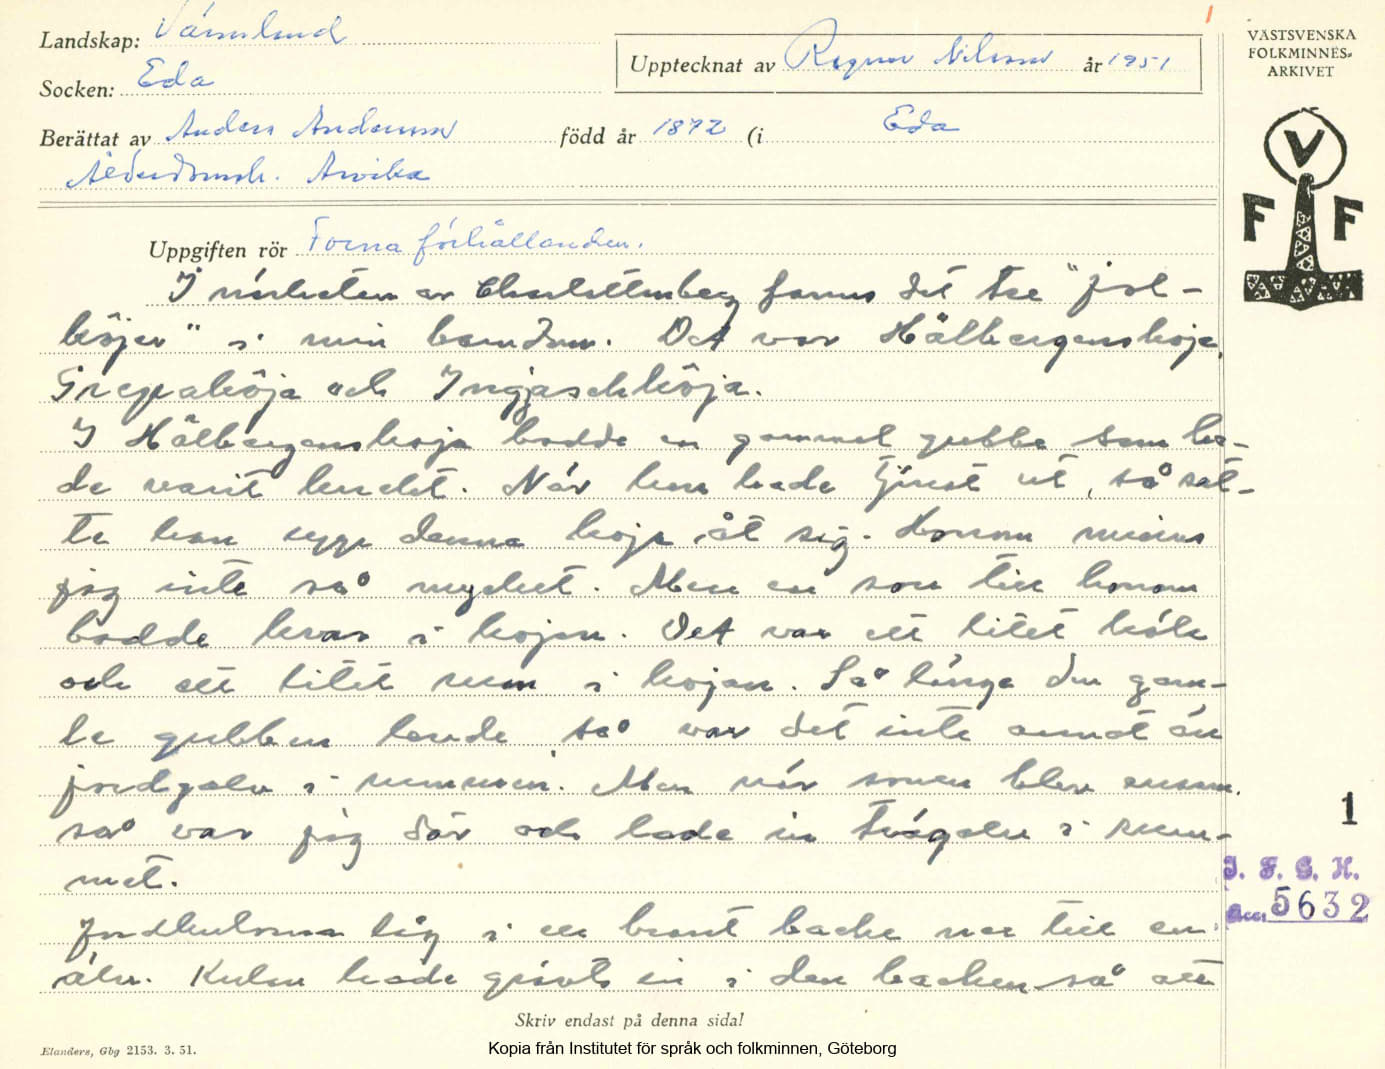 Landskap: Värmland
Upptecknat av Ragnar Nilsson år 1951
Socken: Eda
Berättat av Anders Andersson född år 1872 (i Eda
Ålderdomsh. Arvika
VÄSTSVENSKA
FOLKMINNES-
ARKIVET
V
F F
Uppgiften rör Forna förhållanden.
I närheten av Charlottenberg fanns det tre "jol-
köjer" i min barndom. Det var Hålbergenskoja,
Grepaköja och Ingjaschköja.
I Hålbergenskoja bodde en gammal gubbe som ha-
de varit knekt. När han hade tjänst ut, så sat-
te han upp denna koja åt sig. Honom minns
jag inte så mycket. Men en son till honom
bodde kvar i kojan. Det var ett litet kök
och ett litet rum i kojan. Så länge den gam-
le gubben levde, så var det inte annat än
jordgolv i rummen. Men när sonen blev ensam,
så var jag där och lade in trägolv i rum-
met.
Jordkulorna låg i en brant backe ner till en
älv. Kulan hade grävts in i den backen så att
1
I. F. G. H.
Acc. 5632
Skriv endast på denna sida!
Elanders, Gbg 2153. 3. 51.
Kopia från Institutet för språk och folkminnen, Göteborg